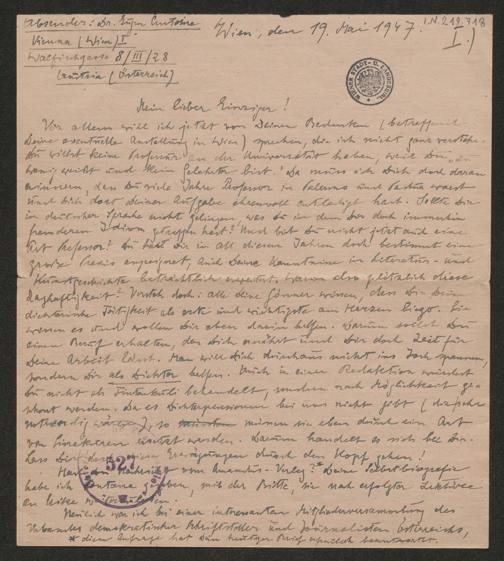 Absender: Dr. Eugen
Wien, den 19. Mai 1947.
I.N. 219.718
I.)
Vienna (Wien) I
Walfischgasse 8/III/28
Austria (Österreich)
Mein lieber Einziger!
Vor allem will ich jetzt von Deinen Bedenken (betreffend
Deine eventuelle Anstellung in Wien) sprechen, die ich nicht ganz verstehe.
Du willst keine Professur an der Universität haben, weil Du
wenig weisst und kein Gelehrter bist. Da muss ich Dich doch daran
erinnern, dass Du viele Jahre Professor in Palermo und Padua warst
und Dich dort Deiner Aufgabe ehrenvoll entledigt hast. Sollte Dir
in deutscher Sprache nicht gelingen, was Du in dem Dir doch immerhin
fremderen Idiom getroffen hast? Und bist Du nicht jetzt auch eine
Art Professor? Du hast Dir in all diesen Jahren doch bestimmt eine
grosse Praxis angeeignet, auch Deine Kenntnisse in Literatur- und
Kunstgeschichte beträchtlich erweitert. Warum also plötzlich diese
Zaghaftigkeit? Versteh doch: alle Deine Gönner wissen, dass Dir Deine
dichterische Tätigkeit als erste und wichtigste am Herzen liegt. Sie
wissen es und wollen Dir eben darin helfen. Darum sollst Du
einen Beruf erhalten, der Dich ernährt und Dir doch Zeit für
Deine Arbeit lässt. Man will Dich durchaus nicht ins Joch spannen,
sondern Dir als Dichter helfen. Auch in einer Redaktion würdest
Du nicht als Tintenkuli behandelt, sondern nach Möglichkeit ge-
schont werden. Da es Dichterpensionen bei uns nicht gibt (
notwendig wären), so müssen sie eben durch eine Art
von Sinekuren ersetzt werden. Darum handelt es sich bei Dir.
Lass Dir Erwägungen durch den Kopf gehen!
327
Hast Du Nachricht vom Amandus-Verlag?* Deine Selbstbiografie
habe ich gegeben, mit der Bitte, sie nach erfolgter Lektüre
an weiterzuleiten.
Neulich war ich bei einer interessanten Mitgliederversammlung des
Verbandes demokratischer Schriftsteller und Journalisten Österreichs,
* diese Anfrage hat Dein heutiger Brief beantwortet.